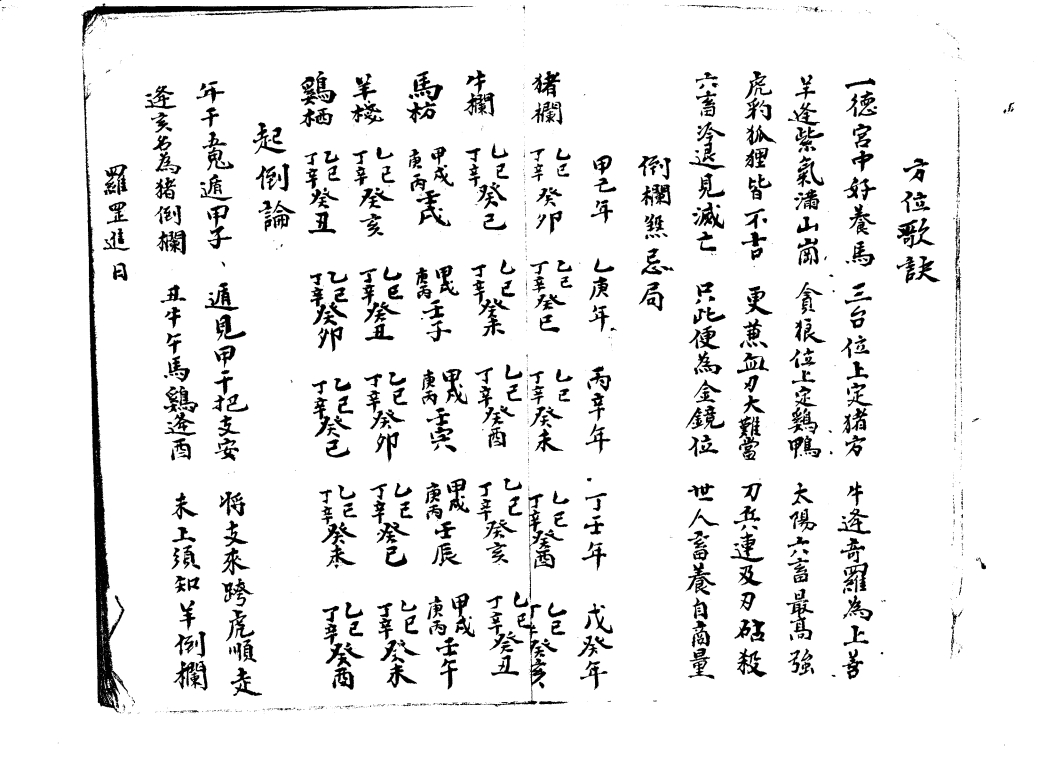 方位歌訣
一德宮中好養馬 三台位上定猪方 牛逢奇羅為上善
羊逢紫氣滿山崗 貪狼位上定鷄鴨 太陽六畜最高強
虎豹狐狸皆不吉 更薫血刃大難當 刀兵連及刃砧殺
六畜冷退見滅亡 只此便為金鏡位 世人畜養自商量
倒欄煞忌局
甲己年 乙庚年 丙辛年 丁壬年 戊癸年
猪欄 乙己丁辛癸卯 乙己丁辛癸巳 乙己丁辛癸未 乙己丁辛癸酉 乙己丁辛癸亥
牛欄 乙己丁辛癸巳 乙己丁辛癸未 乙己丁辛癸酉 乙己丁辛癸亥 乙己丁辛癸丑
馬枋 甲戊庚丙壬戌 甲戊庚丙壬子 甲戊庚丙壬寅 甲戊庚丙壬辰 甲戊庚丙壬午
羊棧 乙己丁辛癸亥 乙己丁辛癸丑 乙己丁辛癸卯 乙己丁辛癸巳 乙己丁辛癸未
鷄栖 乙己丁辛癸丑 乙己丁辛癸卯 乙己丁辛癸巳 乙己丁辛癸未 乙己丁辛癸酉
起倒論
年干五鬼遁甲子、遁見甲干把支安 将支來跨虎順走
逢亥名為猪倒欄 丑牛午馬鷄逢酉 未上須知羊倒欄
羅罡進日